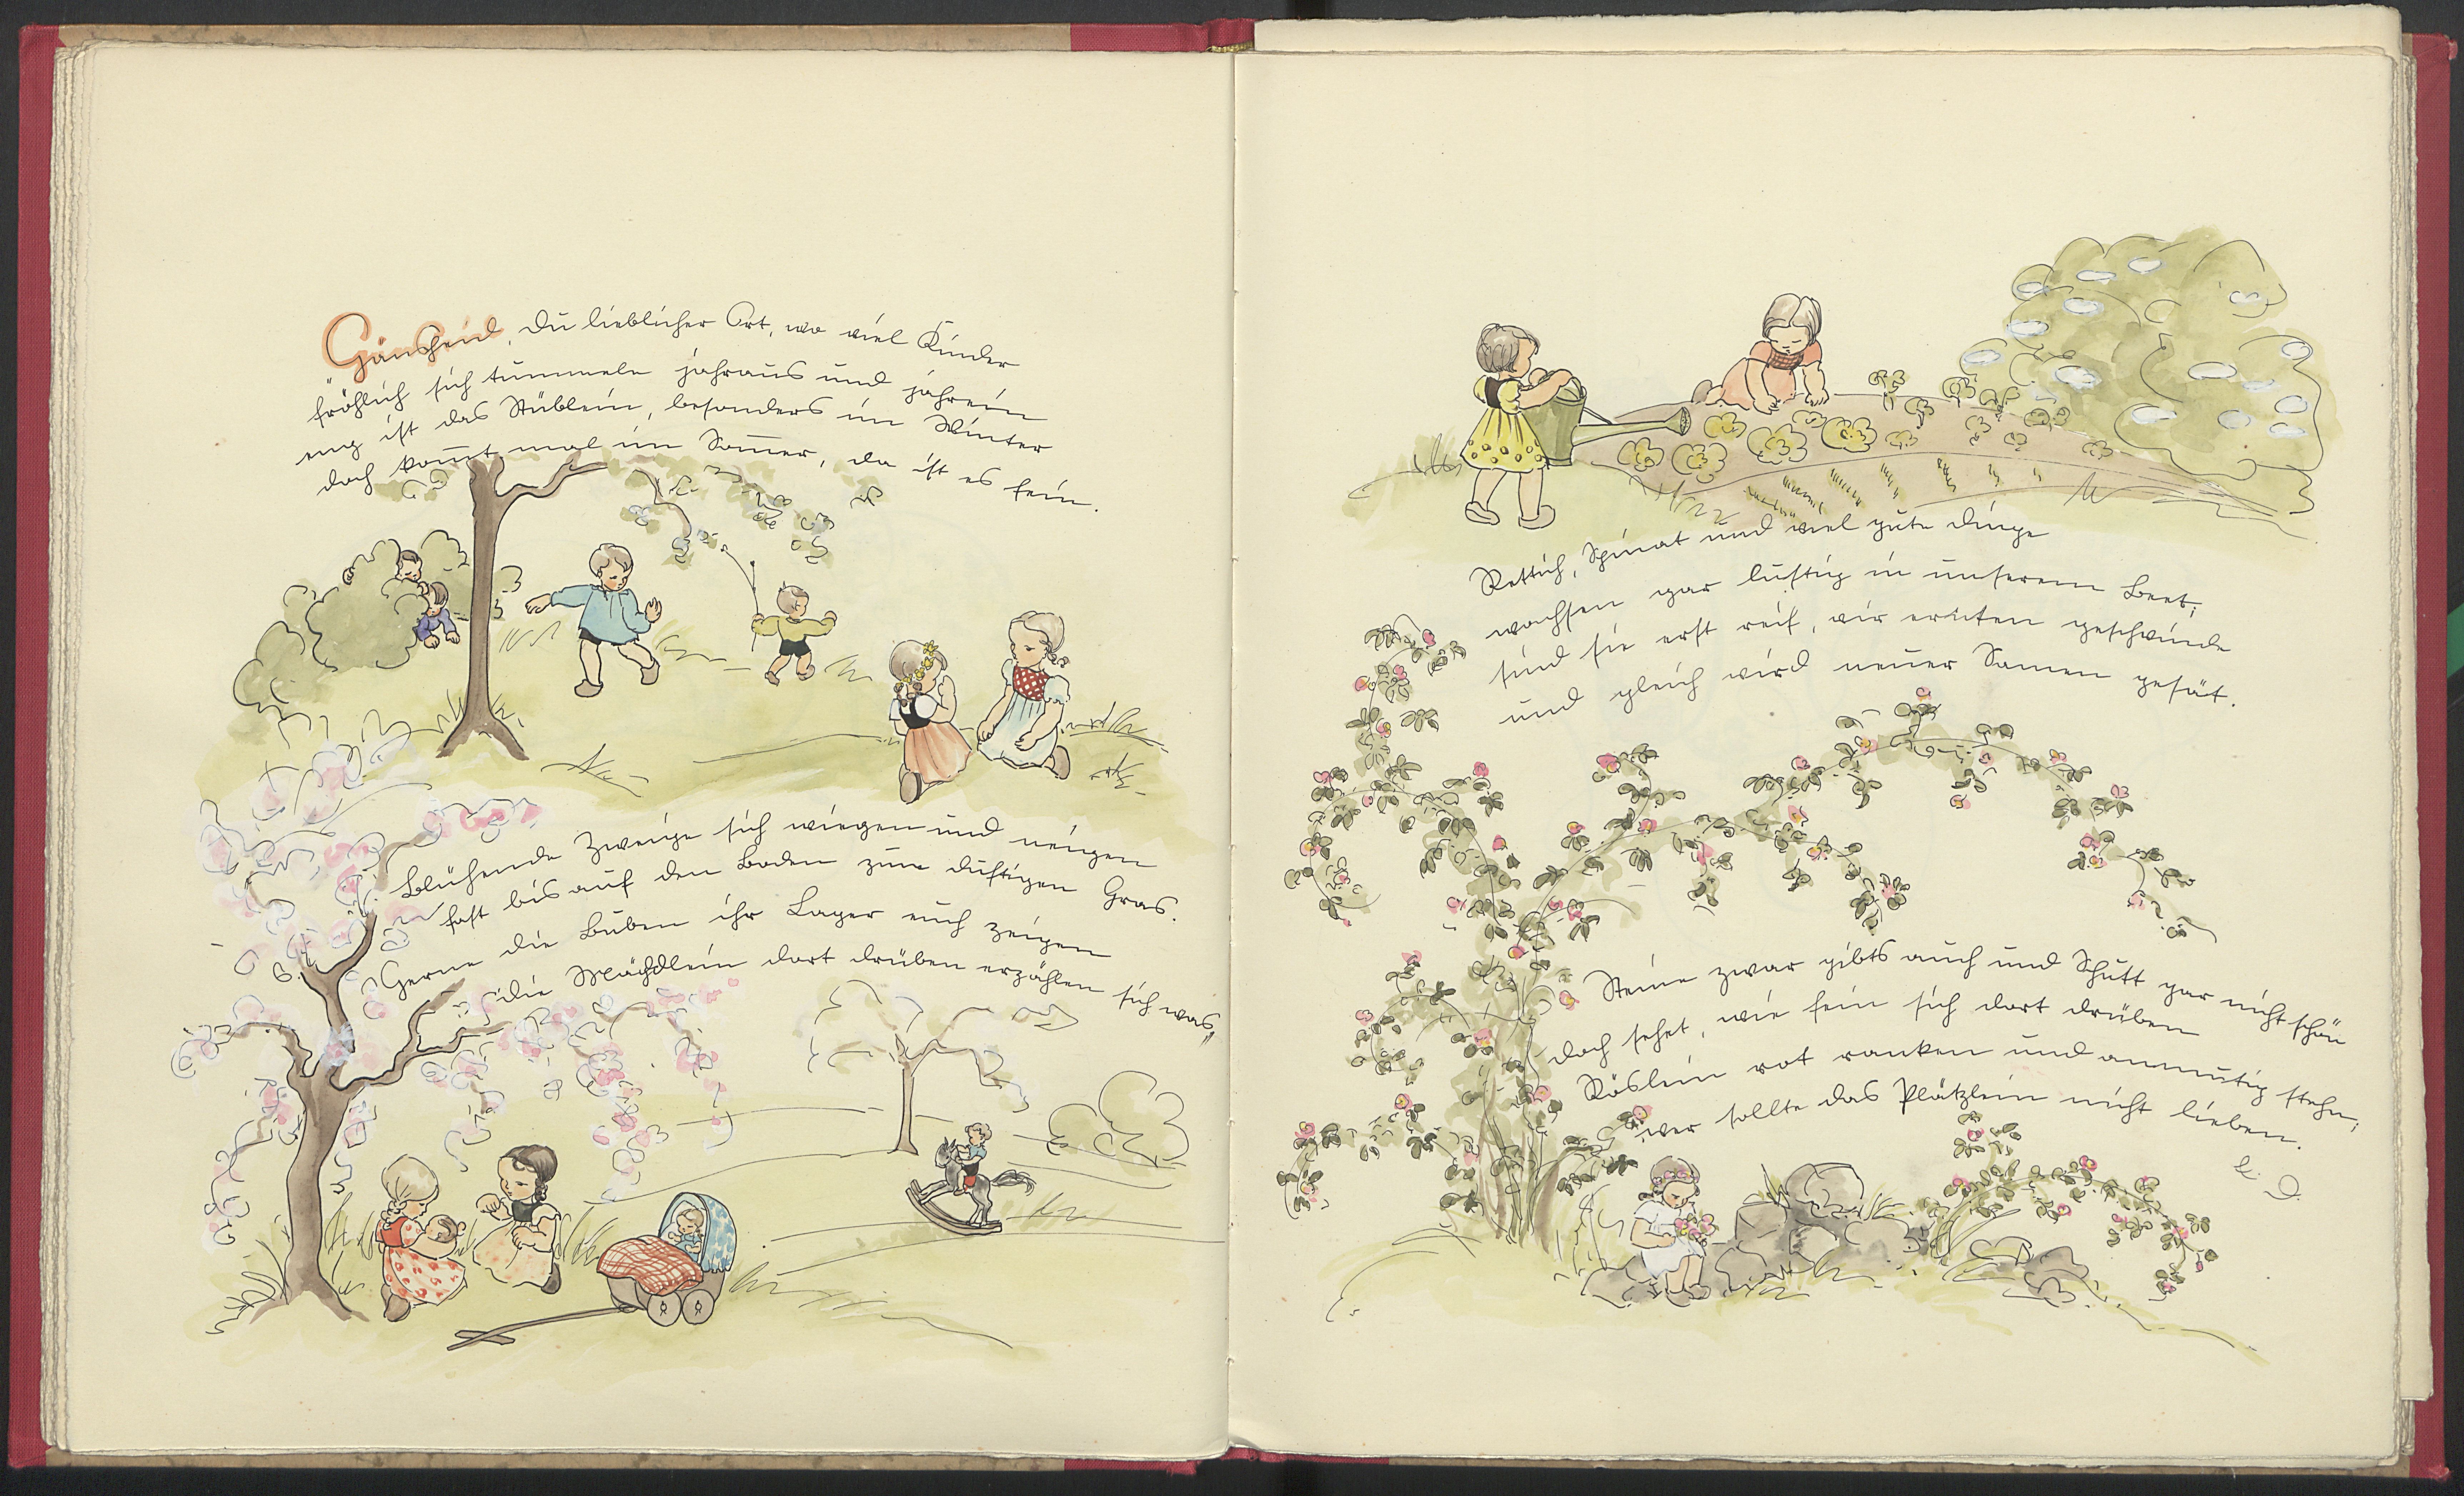 Gänsheid, du lieblicher Ort, wo viel Kinder
fröhlich sich tummeln jahraus und jahrein
eng ist das Stüblein, besonders im Winter
doch kom̅t mal im Som̅er, da ist es fein.
Blühende Zweige sich wiegen und neigen
fast bis auf den Boden zum duftigen Gras.
Gerne die Buben ihr Lager euch zeigen
die Mädchlein dort drüben erzählen sich was,"
Rettich, Spinat und viel gute Dinge
wachsen gar lustig in unserem Beet;
sind sie erst reif, wir ernten geschwinde
und gleich wird neuer Samen gesät.
Steine zwar gibts auch und Schutt gar nicht schön
doch sehet, wie fein sich dort drüben
Röslein rot ranken und anmutig stehn,
wer sollte das Plätzlein nicht lieben.
L. D.